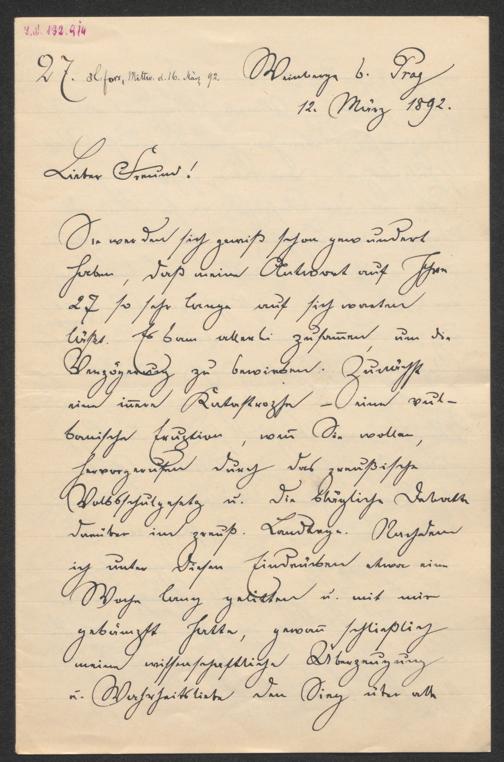 27.
Mittw. d. 16. März 92.
Weinberge b. Prag
12. März 1892.
Lieber Freund!
Sie werden sich gewiß schon gewundert
haben, daß meine Antwort auf Ihre
27 so sehr lange auf sich warten
läßt. Es kam allerlei zusam̅en, um die
Verzögerung zu bewirken. Zunächst
eine in̅ere Katastrophe – eine vul-
kanische Eruption, wen̅ Sie wollen,
hervorgerufen durch das preußische
Volksschulgesetz u. die klägliche Debatte
darüber im preuß. Landtage. Nachdem
ich unter diesen Eindrücken etwa eine
Woche lang gelitten u. mit mir
gekämpft hatte, gewan̅ schließlich
meine wissenschaftliche Überzeugung
u. Wahrheitsliebe den Sieg über alle